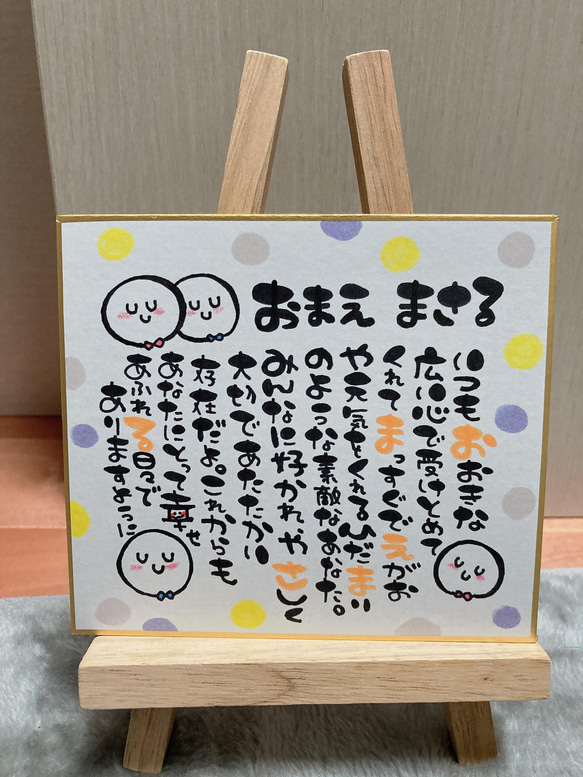 おまえ まさる
いつもおおきな
広い心で受けとめて
くれてまっすぐでえがお
や元気をくれるひだまり
のような素敵なあなた。
みんなに好かれ、やさしく
大切であたたかい
存在だよ。これからも
あなたにとって幸せ
あふれる日々で
ありますように